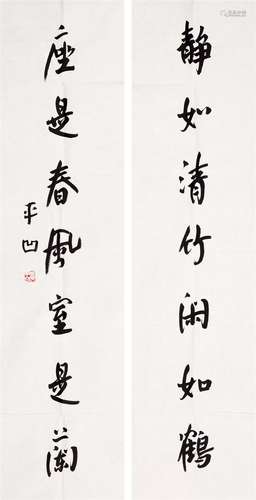 静如清竹闲如鹤
座是春风室是兰
平凹